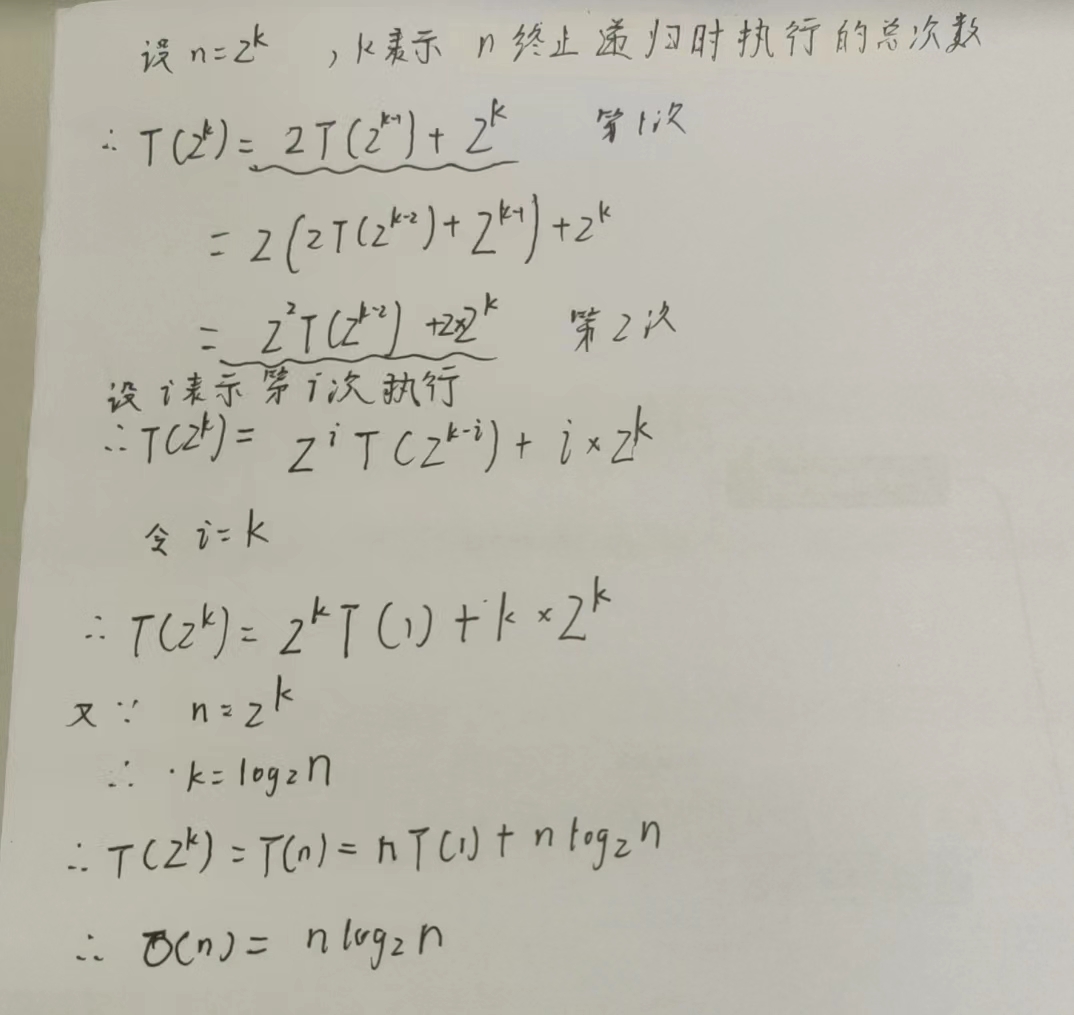 设 n=2^k ，k表示 n终止递归时执行的总次数
∴ T(2^k)= 2T(2^{k-1})+2^k 第1次
= 2(2T(2^{k-2})+2^{k-1})+2^k
= 2^2T(2^{k-2})+2×2^k 第2次
设i表示第i次执行
∴T(2^k)= 2^iT(2^{k-i})+i×2^k
令 i=k
∴ T(2^k)=2^kT(1)+k×2^k
又∵ n=2^k
∴ k=log₂n
∴T(2^k)=T(n)=nT(1)+nlog₂n
∴ O(n)= nlog₂n